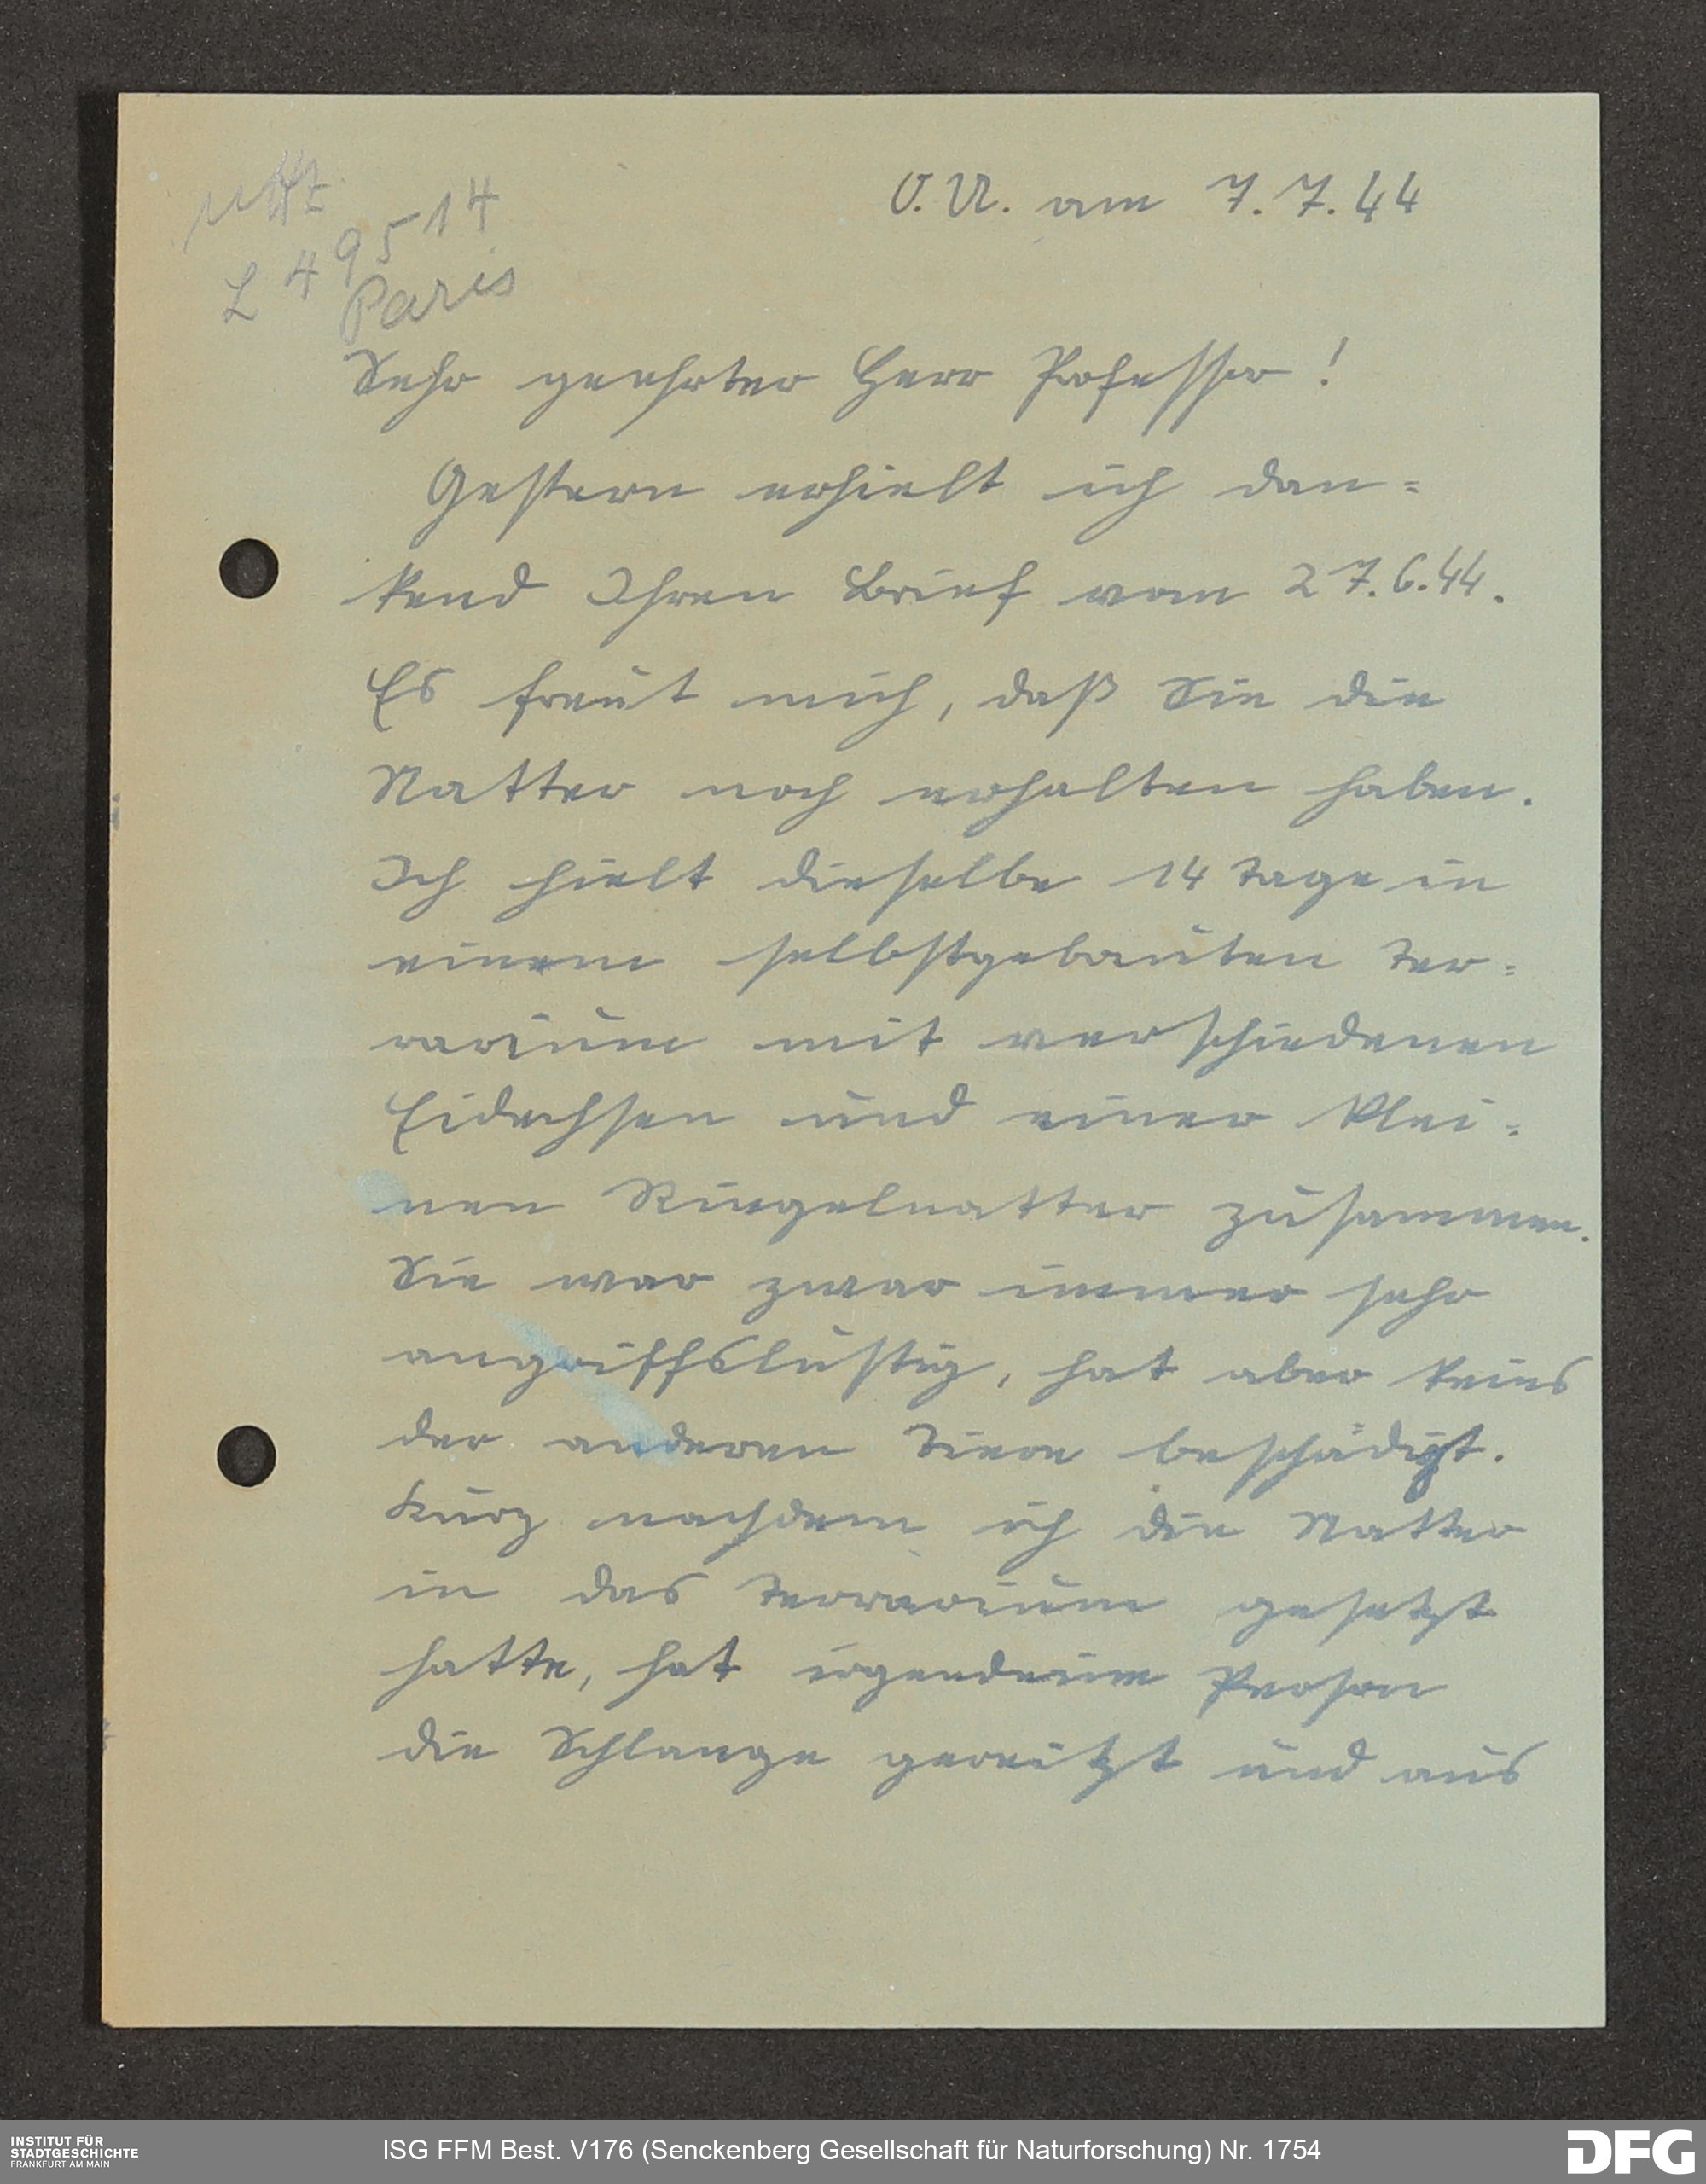 O.U. am 7.7.44
L 49514
Paris
Sehr geehrter Herr Professor!
Gestern erhielt ich dan=
kend Ihren Brief vom 27.6.44.
Es freut mich, daß Sie die
Natter noch erhalten haben.
Ich hielt dieselbe 14 Tage in
einem selbstgebauten Ter=
rarium mit verschiedenen
Eidechsen und einer klei=
nen Ringelnatter zusammen.
Sie war zwar immer sehr
angriffslustig, hat aber keins
der anderen Tiere beschädigt.
Kurz nachdem ich die Natter
in das Terrarium gesetzt
hatte, hat irgendeine Person
die Schlange gereitzt und aus
INSTITUT FÜR
STADTGESCHICHTE
FRANKFURT AM MAIN
ISG FFM Best. V176 (Senckenberg Gesellschaft für Naturforschung) Nr. 1754
DFG